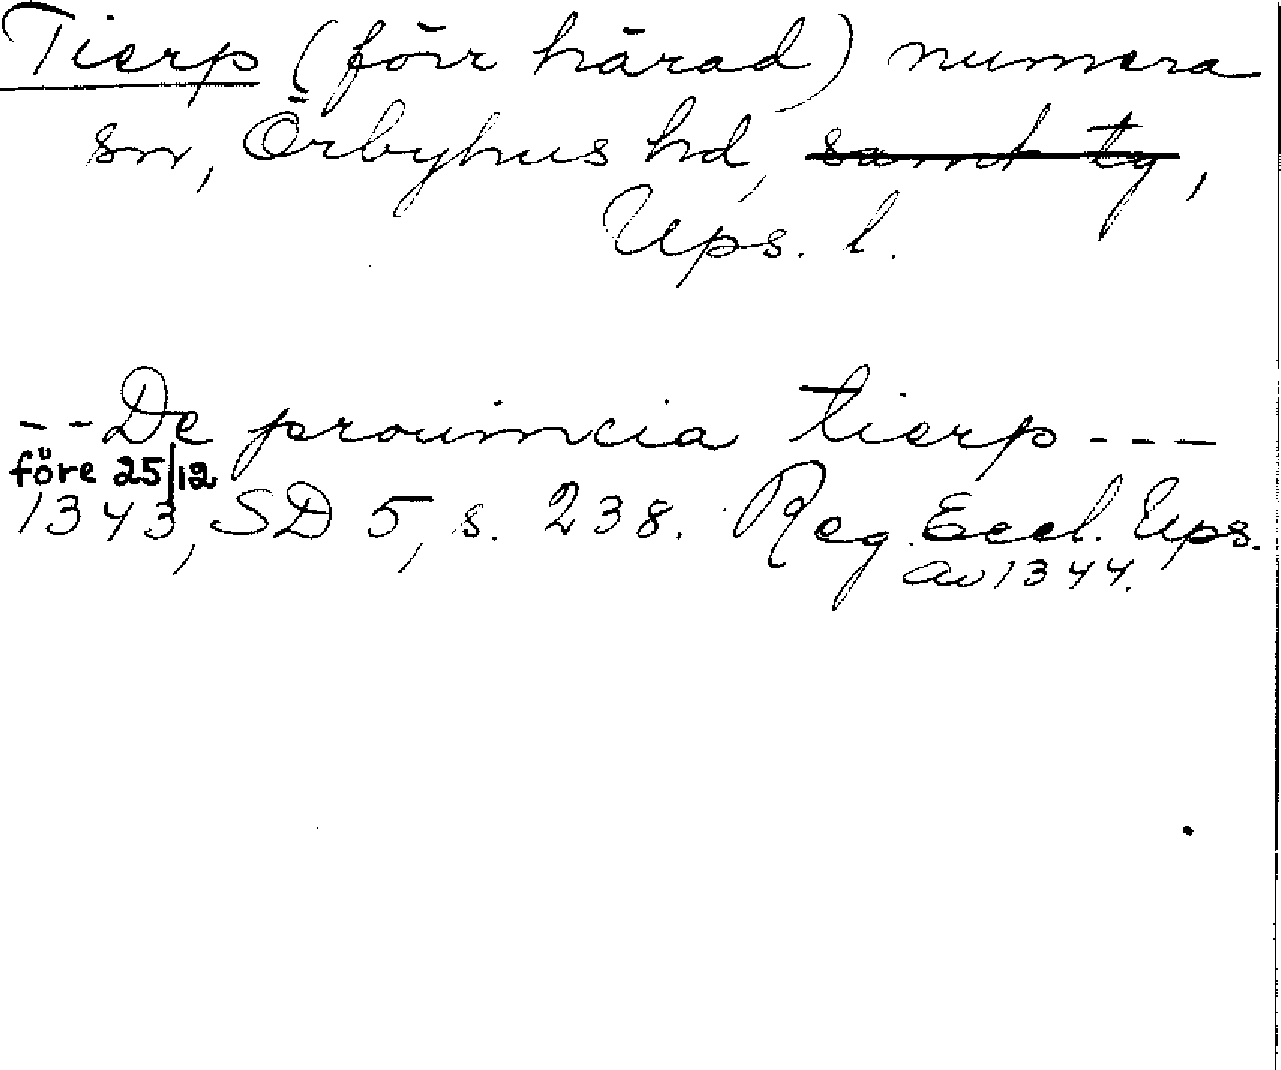 Tierp (förr härad) numera
sn, Örbyhus hd, samt tg,
Ups. l.
-- De prouincia tierp ---
före 25/12
1343, SD 5, s. 238. Reg. Eccl. Ups.
av 1344.